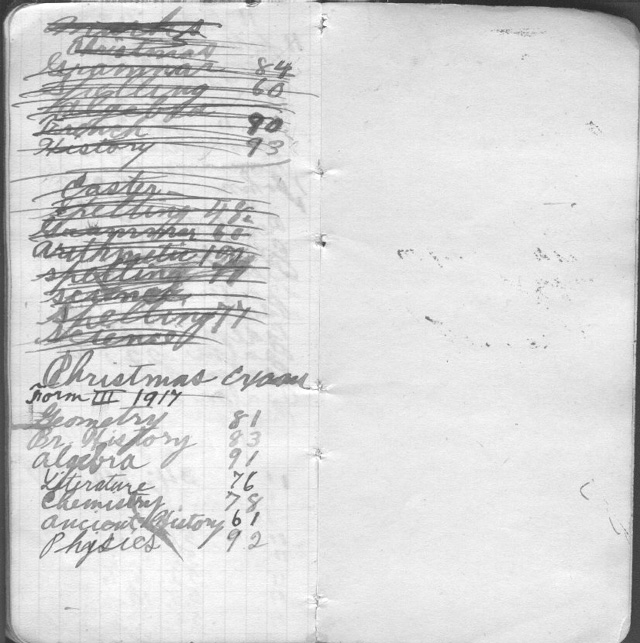 Christmas
Grammar 84
Spelling 60
French 90
History 93
Easter
Spelling
Grammar
Arithmetic
Spelling
Science
Spelling 77
Science
Christmas Exam
Form III 1917
Geometry 81
Br. History 83
Algebra 91
Literature 76
Chemistry 78
Ancient History 61
Physics 92